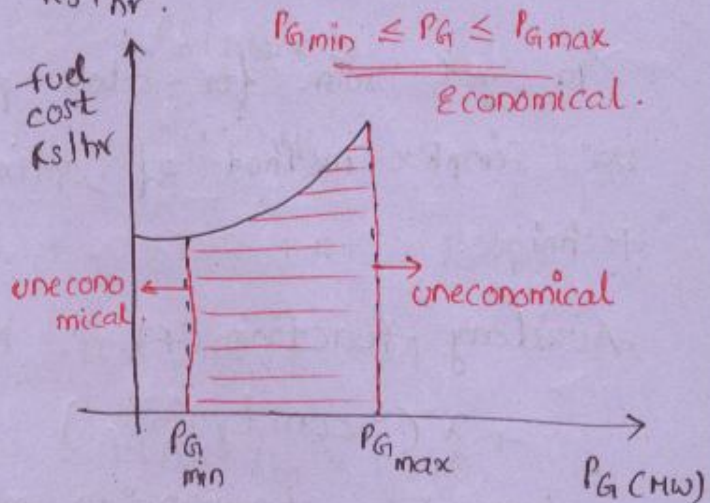 Rs/hr.
PGmin ≤ PG ≤ PGmax
Economical.
fuel
cost
Rs/hr
unecono
mical
uneconomical
PG
min
PG
max
PG (MW)